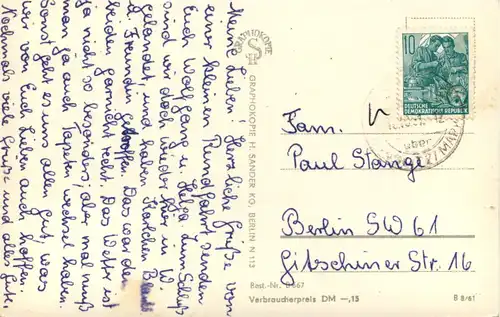 Meine Lieben! Herzliche Grüße von
einer kleinen Rundfahrt senden
Euch Wolfgang u. Helga. Zum Schluß
sind wir doch wieder hier in W.
gelandet, und haben Karlchen
u. Freundin getroffen. Das war den
beiden garnicht recht. Das Wetter ist
ja nicht so besonders, aber mal muß
man ja auch Tapeten wechsel haben.
Sonst geht es uns allen gut, was
wir von Euch Lieben auch hoffen.
Nochmals viele Grüße und alles Gute.
GRAPHOKOPIE
GRAPHOKOPIE H. SANDER KG, BERLIN N 113
10
DEUTSCHE
DEMOKRATISCHE REPUBLIK
über
Fam.
Paul Stange
Berlin SW 61
Gitschiner Str. 16
Best.-Nr. B 667
Verbraucherpreis DM —,15
B 8/61